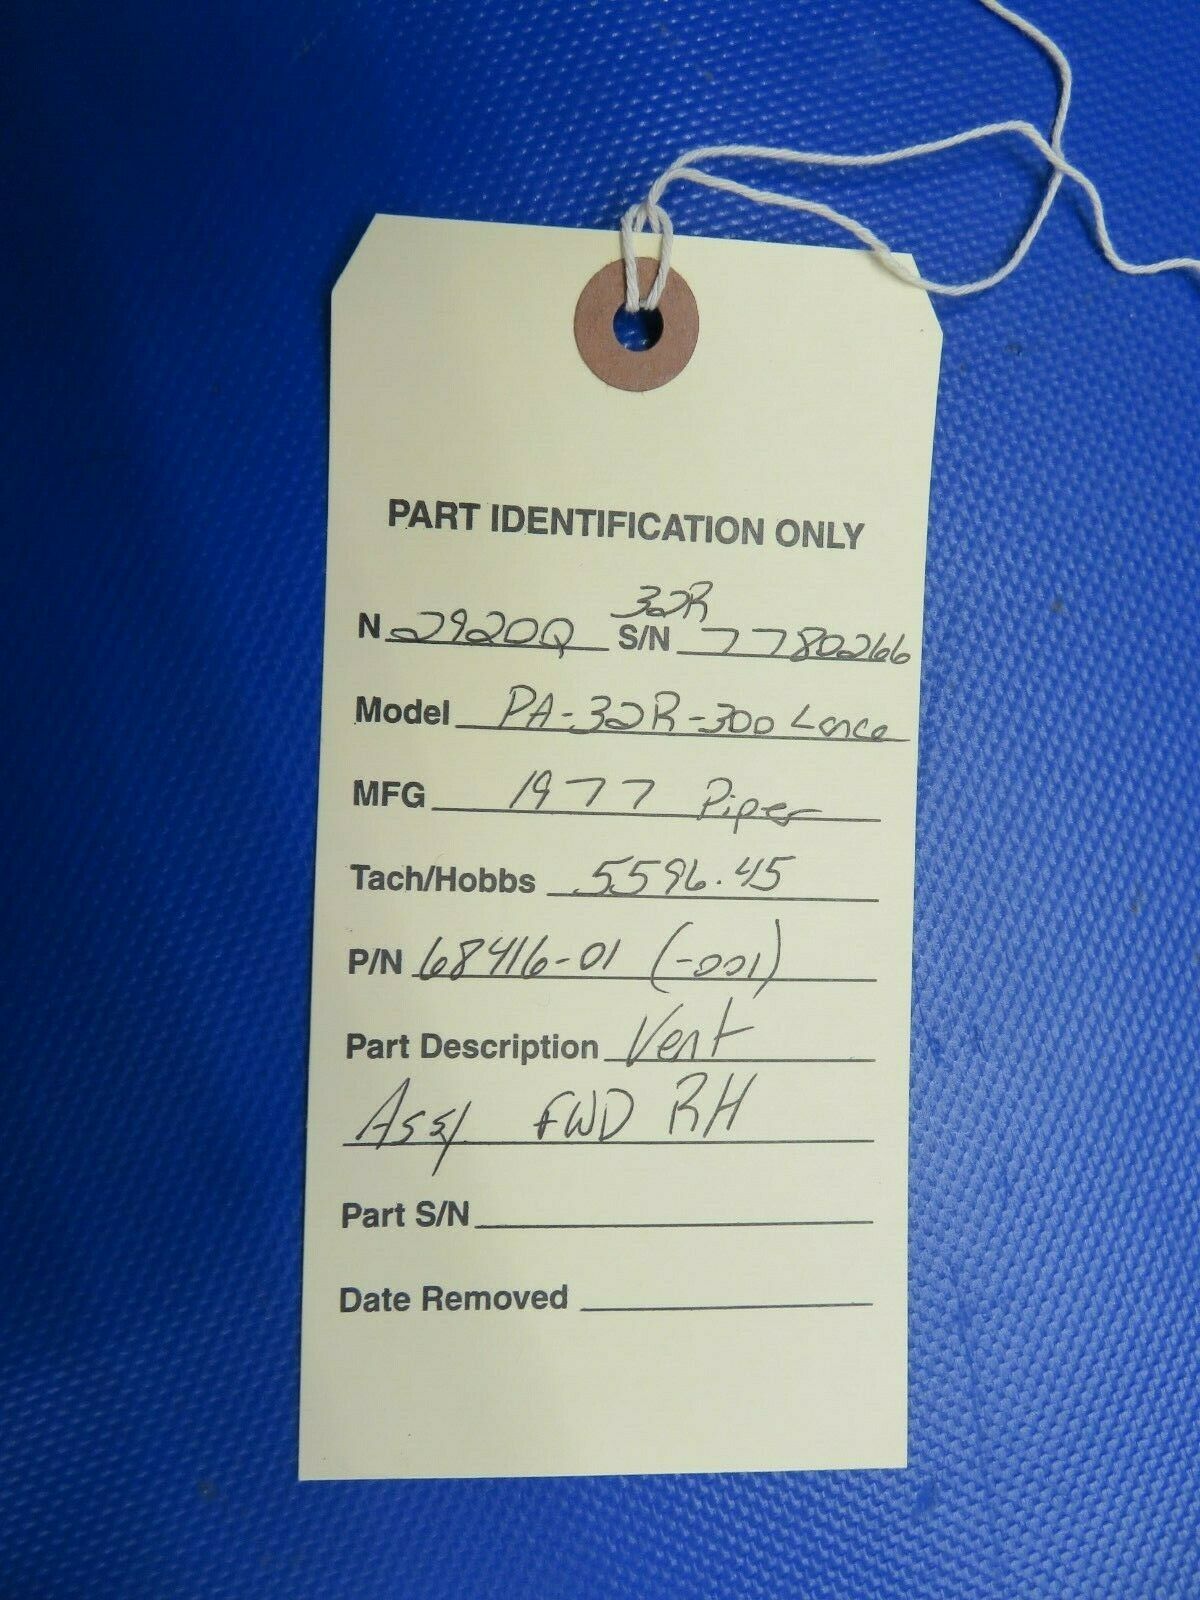 PART IDENTIFICATION ONLY
32R
N 2920Q S/N 7780266
Model PA-32R-300 Lance
MFG 1977 Piper
Tach/Hobbs 5596.45
P/N 68416-01 (-001)
Part Description Vent
Assy FWD RH
Part S/N
Date Removed